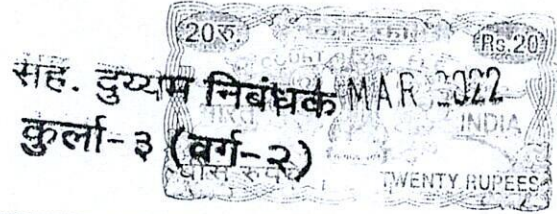 20रु.
Rs.20
सह. दुय्यम निबंधक MAR 2022
कुर्ला-३ (वर्ग-२)
INDIA
TWENTY RUPEES